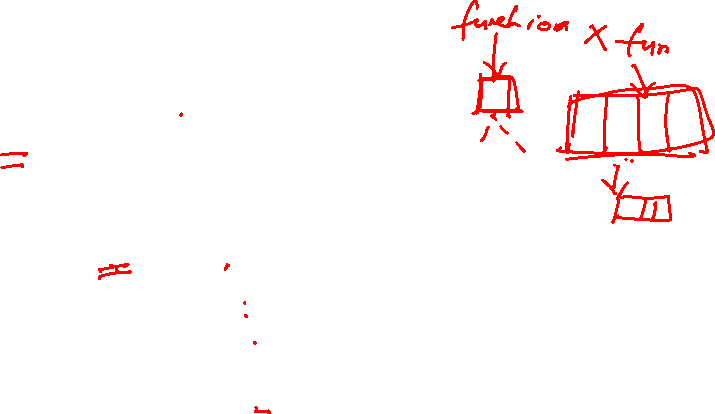 function X fun